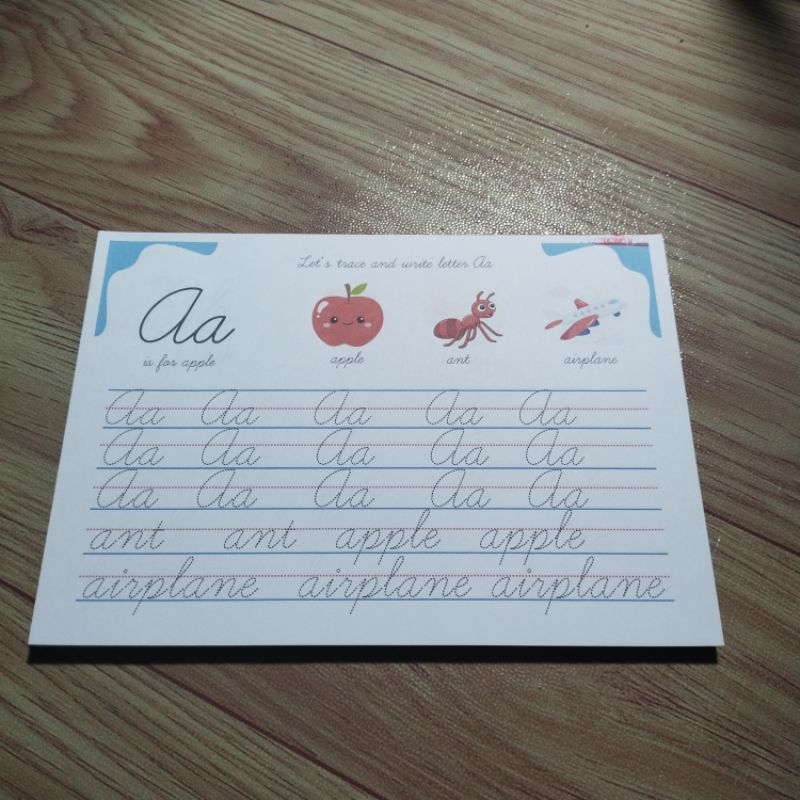 Let's trace and write letter Aa
Aa
is for apple
apple ant airplane
Aa Aa Aa Aa Aa
Aa Aa Aa Aa Aa
Aa Aa Aa Aa Aa
ant ant apple apple
airplane airplane airplane